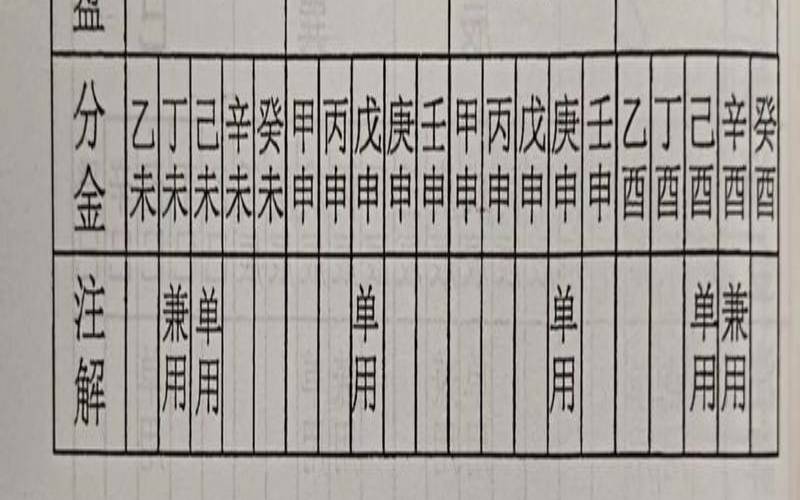 盘
分金 乙未 丁未 己未 辛未 癸未 甲申 丙申 戊申 庚申 壬申 甲申 丙申 戊申 庚申 壬申 乙酉 丁酉 己酉 辛酉 癸酉
注解 兼用 单用 单用 单用 单用 兼用